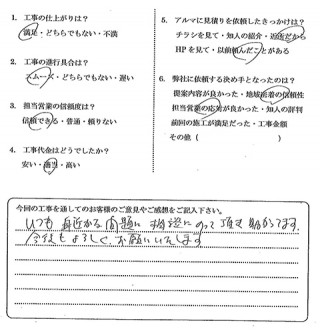 1. 工事の仕上がりは？
満足・どちらでもない・不満
2. 工事の進行具合は？
スムーズ・どちらでもない・遅い
3. 担当営業の信頼度は？
信頼できる・普通・頼りない
4. 工事代金はどうでしたか？
安い・適当・高い
5. アルマに見積りを依頼したきっかけは？
チラシを見て・知人の紹介・近所だから
HPを見て・以前頼んだことがある
6. 弊社に依頼する決め手となったのは？
提案内容が良かった・地域密着の信頼性
担当営業の応対が良かった・知人の評判
前回の施工が満足だった・工事金額
その他（　　　）
今回の工事を通してのお客様のご意見やご感想をご記入下さい。
いつも身近な問題に相談にのって頂き助かってます。
今後もよろしくお願いいたします